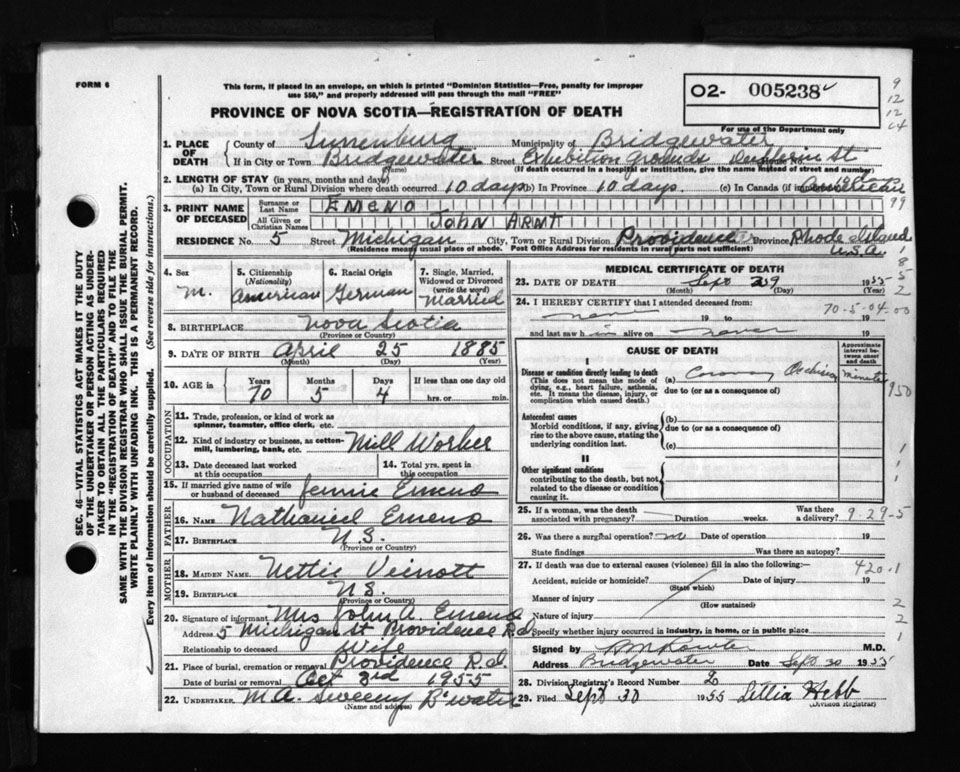 FORM 6
This form, if placed in an envelope, on which is printed "Dominion Statistics—Free, penalty for improper
use $50," and properly addressed will pass through the mail "FREE"
O2- 005238
For use of the Department only
PROVINCE OF NOVA SCOTIA—REGISTRATION OF DEATH
9
12
12
64
1. PLACE OF DEATH
County of Lunenburg Municipality of Bridgewater
If in City or Town Bridgewater Street Exhibition Grounds Dufferin St
(Name) (If death occurred in a hospital or institution, give the name instead of street and number)
2. LENGTH OF STAY (in years, months and days)
(a) In City, Town or Rural Division where death occurred 10 days (b) In Province 10 days. (c) In Canada (if immigrant) 10 days
American
3. PRINT NAME OF DECEASED
Surname or Last Name EMENO
All Given or Christian Names JOHN ARMT
RESIDENCE No. 5 Street Michigan City, Town or Rural Division Providence Province Rhode Island
U.S.A.
(Residence means usual place of abode. Post Office Address for residents in rural parts not sufficient)
4. Sex M.
5. Citizenship (Nationality) American
6. Racial Origin German
7. Single, Married, Widowed or Divorced (write the word) Married
8. BIRTHPLACE Nova Scotia
(Province or Country)
9. DATE OF BIRTH April 25 1885
(Month) (Day) (Year)
10. AGE in Years 70 Months 5 Days 4 If less than one day old hrs. or min.
OCCUPATION
11. Trade, profession, or kind of work as
spinner, teamster, office clerk, etc.
12. Kind of industry or business, as cotton-
mill, lumbering, bank, etc. Mill Worker
13. Date deceased last worked
at this occupation
14. Total yrs. spent in
this occupation
15. If married give name of wife
or husband of deceased Jennie Emeno
FATHER
16. NAME Nathaniel Emeno
17. BIRTHPLACE N.S.
(Province or Country)
MOTHER
18. MAIDEN NAME Nettie Veinott
19. BIRTHPLACE N.S.
(Province or Country)
20. Signature of informant Mrs John A. Emeno
Address 5 Michigan St Providence R.I.
Relationship to deceased Wife
21. Place of burial, cremation or removal Providence R.I.
Date of burial or removal Oct 3rd 1955
22. UNDERTAKER M.A. Sweeny B'water
(Name and address)
MEDICAL CERTIFICATE OF DEATH
23. DATE OF DEATH Sept 29 1955
(Month) (Day) (Year)
24. I HEREBY CERTIFY that I attended deceased from:
19 to 19
70-5-04-00
and last saw h im alive on never 19
CAUSE OF DEATH
Approximate interval between onset and death
I
Disease or condition directly leading to death
(This does not mean the mode of dying, e.g., heart failure, asthenia, etc. It means the disease, injury, or complication which caused death.)
(a) Coronary Occlusion minutes
due to (or as a consequence of)
Antecedent causes
Morbid conditions, if any, giving rise to the above cause, stating the underlying condition last.
(b)
due to (or as a consequence of)
(c)
II
Other significant conditions
contributing to the death, but not related to the disease or condition causing it.
950
25. If a woman, was the death
associated with pregnancy? Duration weeks. Was there a delivery?
9-29-5
26. Was there a surgical operation? no Date of operation 19
State findings Was there an autopsy?
27. If death was due to external causes (violence) fill in also the following:—
420.1
Accident, suicide or homicide? Date of injury 19
(State which)
Manner of injury
(How sustained)
Nature of injury
Specify whether injury occurred in industry, in home, or in public place
Signed by M.D.
Address Bridgewater Date Sept 30 1955
28. Division Registrar's Record Number
29. Filed Sept 30 1955 Lillia Hebb
(Division Registrar)
SEC. 46—VITAL STATISTICS ACT MAKES IT THE DUTY
OF THE UNDERTAKER OR PERSON ACTING AS UNDER-
TAKER TO OBTAIN ALL THE PARTICULARS REQUIRED
IN THE "REGISTRATION OF DEATH" AND TO FILE THE
SAME WITH THE DIVISION REGISTRAR WHO SHALL ISSUE THE BURIAL PERMIT.
WRITE PLAINLY WITH UNFADING INK. THIS IS A PERMANENT RECORD.
Every item of information should be carefully supplied. (See reverse side for instructions.)